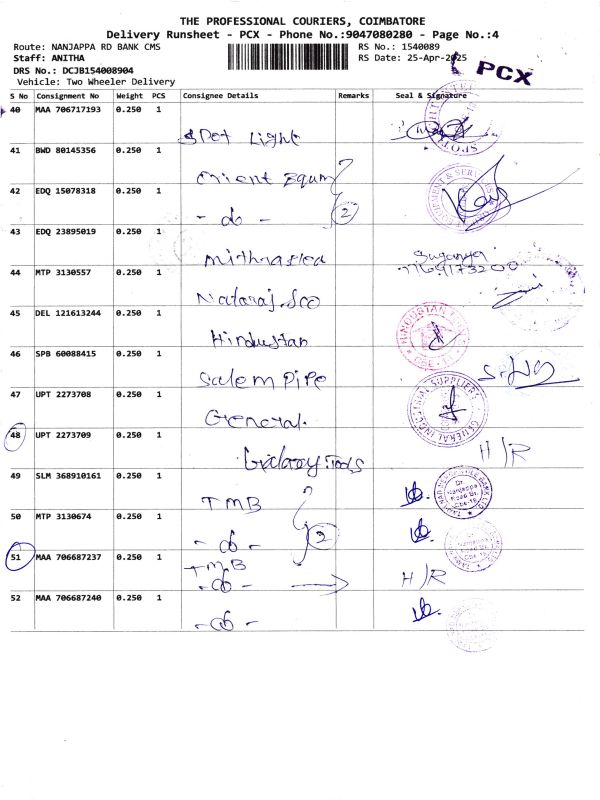 THE PROFESSIONAL COURIERS, COIMBATORE
Delivery Runsheet - PCX - Phone No.:9047080280 - Page No.:4
Route: NANJAPPA RD BANK CMS
RS No.: 1540089
Staff: ANITHA
RS Date: 25-Apr-2025
DRS No.: DCJB154008904
PCX
Vehicle: Two Wheeler Delivery
S No Consignment No Weight PCS Consignee Details Remarks Seal & Signature
40 MAA 706717193 0.250 1
Spot Light
41 BWD 80145356 0.250 1
Orient Equm
42 EDQ 15078318 0.250 1
- do - 2
43 EDQ 23895019 0.250 1
Suganya
44 MTP 3130557 0.250 1
Nataraj
45 DEL 121613244 0.250 1
Hindustan
HINDUSTAN
46 SPB 60088415 0.250 1
Salem Pipe
47 UPT 2273708 0.250 1
General
GENERAL INDUSTRIAL SUPPLIERS
48 UPT 2273709 0.250 1
Galaxy Tools H/R
49 SLM 368910161 0.250 1
TMB
50 MTP 3130674 0.250 1
- do - 2
51 MAA 706687237 0.250 1
TMB
- do - H/R
52 MAA 706687240 0.250 1
- do -